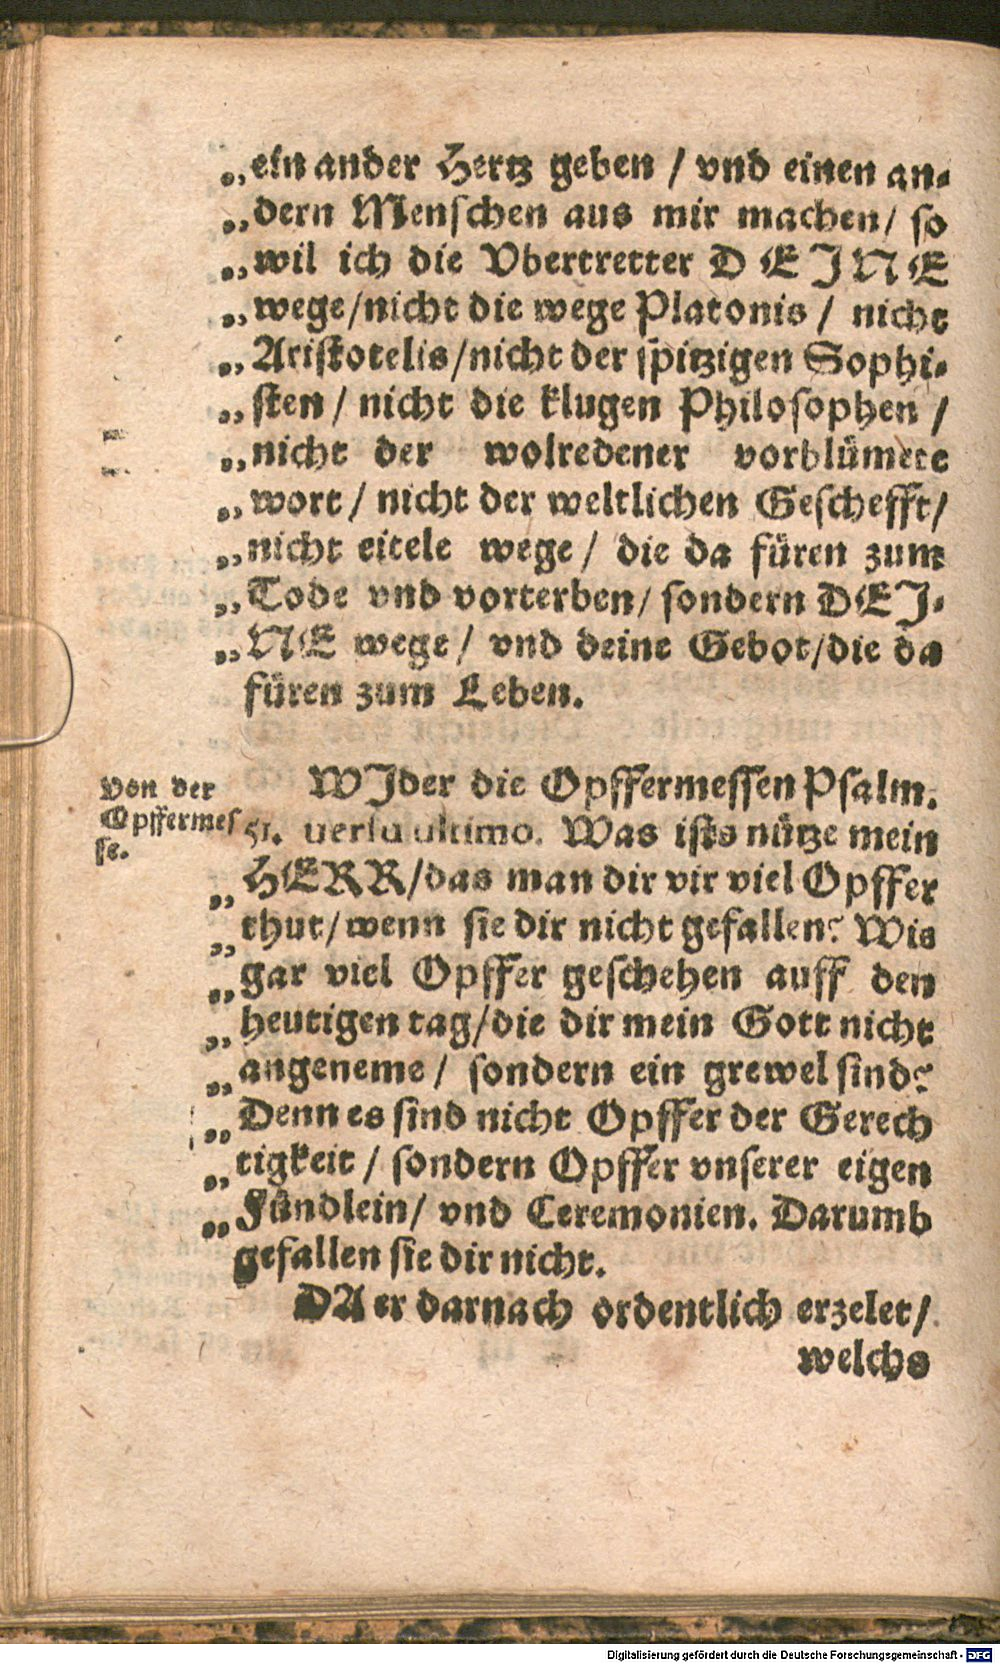 „ein ander Hertz geben / vnd einen an-
„dern Menschen aus mir machen / so
„wil ich die Vbertretter DEINE
„wege / nicht die wege Platonis / nicht
„Aristotelis / nicht der spitzigen Sophi-
„sten / nicht die klugen Philosophen /
„nicht der wolredener vorblümete
„wort / nicht der weltlichen Geschefft /
„nicht eitele wege / die da füren zum
„Tode vnd vorterben / sondern DEI-
„NE wege / vnd deine Gebot / die da
füren zum Leben.
Von der
Opffermes
se.
WIder die Opffermessen Psalm.
51. uersu ultimo. Was ists nütze mein
„HERR / das man dir vir viel Opffer
„thut / wenn sie dir nicht gefallen? Wis
„gar viel Opffer geschehen auff den
„heutigen tag / die dir mein Gott nicht
„angeneme / sondern ein grewel sind?
„Denn es sind nicht Opffer der Gerech
„tigkeit / sondern Opffer vnserer eigen
„Fündlein / vnd Ceremonien. Darumb
gefallen sie dir nicht.
DA er darnach ordentlich erzelet /
welchs
Digitalisierung gefördert durch die Deutsche Forschungsgemeinschaft - DFG